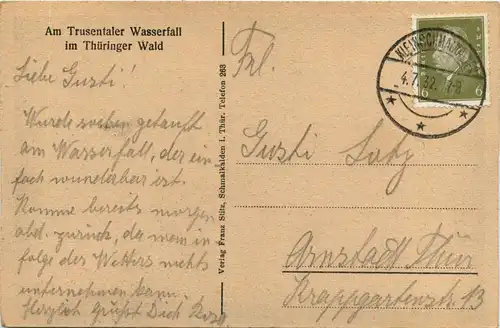 Am Trusentaler Wasserfall
im Thüringer Wald
Liebe Gusti!
Wurde soeben getauft
am Wasserfall, der ein-
fach wunderbar ist.
Komme bereits morgen
abd. zurück, da man in-
folge des Wetters nichts
unternehmen kann.
Herzlich grüßt Dich
Verlag Franz Silz, Schmalkalden i. Thür. Telefon 263
Frl.
Gusti Lotz
Arnstadt Thür
Krappgartenstr. 13
KLEINSCHMALKALDEN
4.7.32. 7-8
6 6